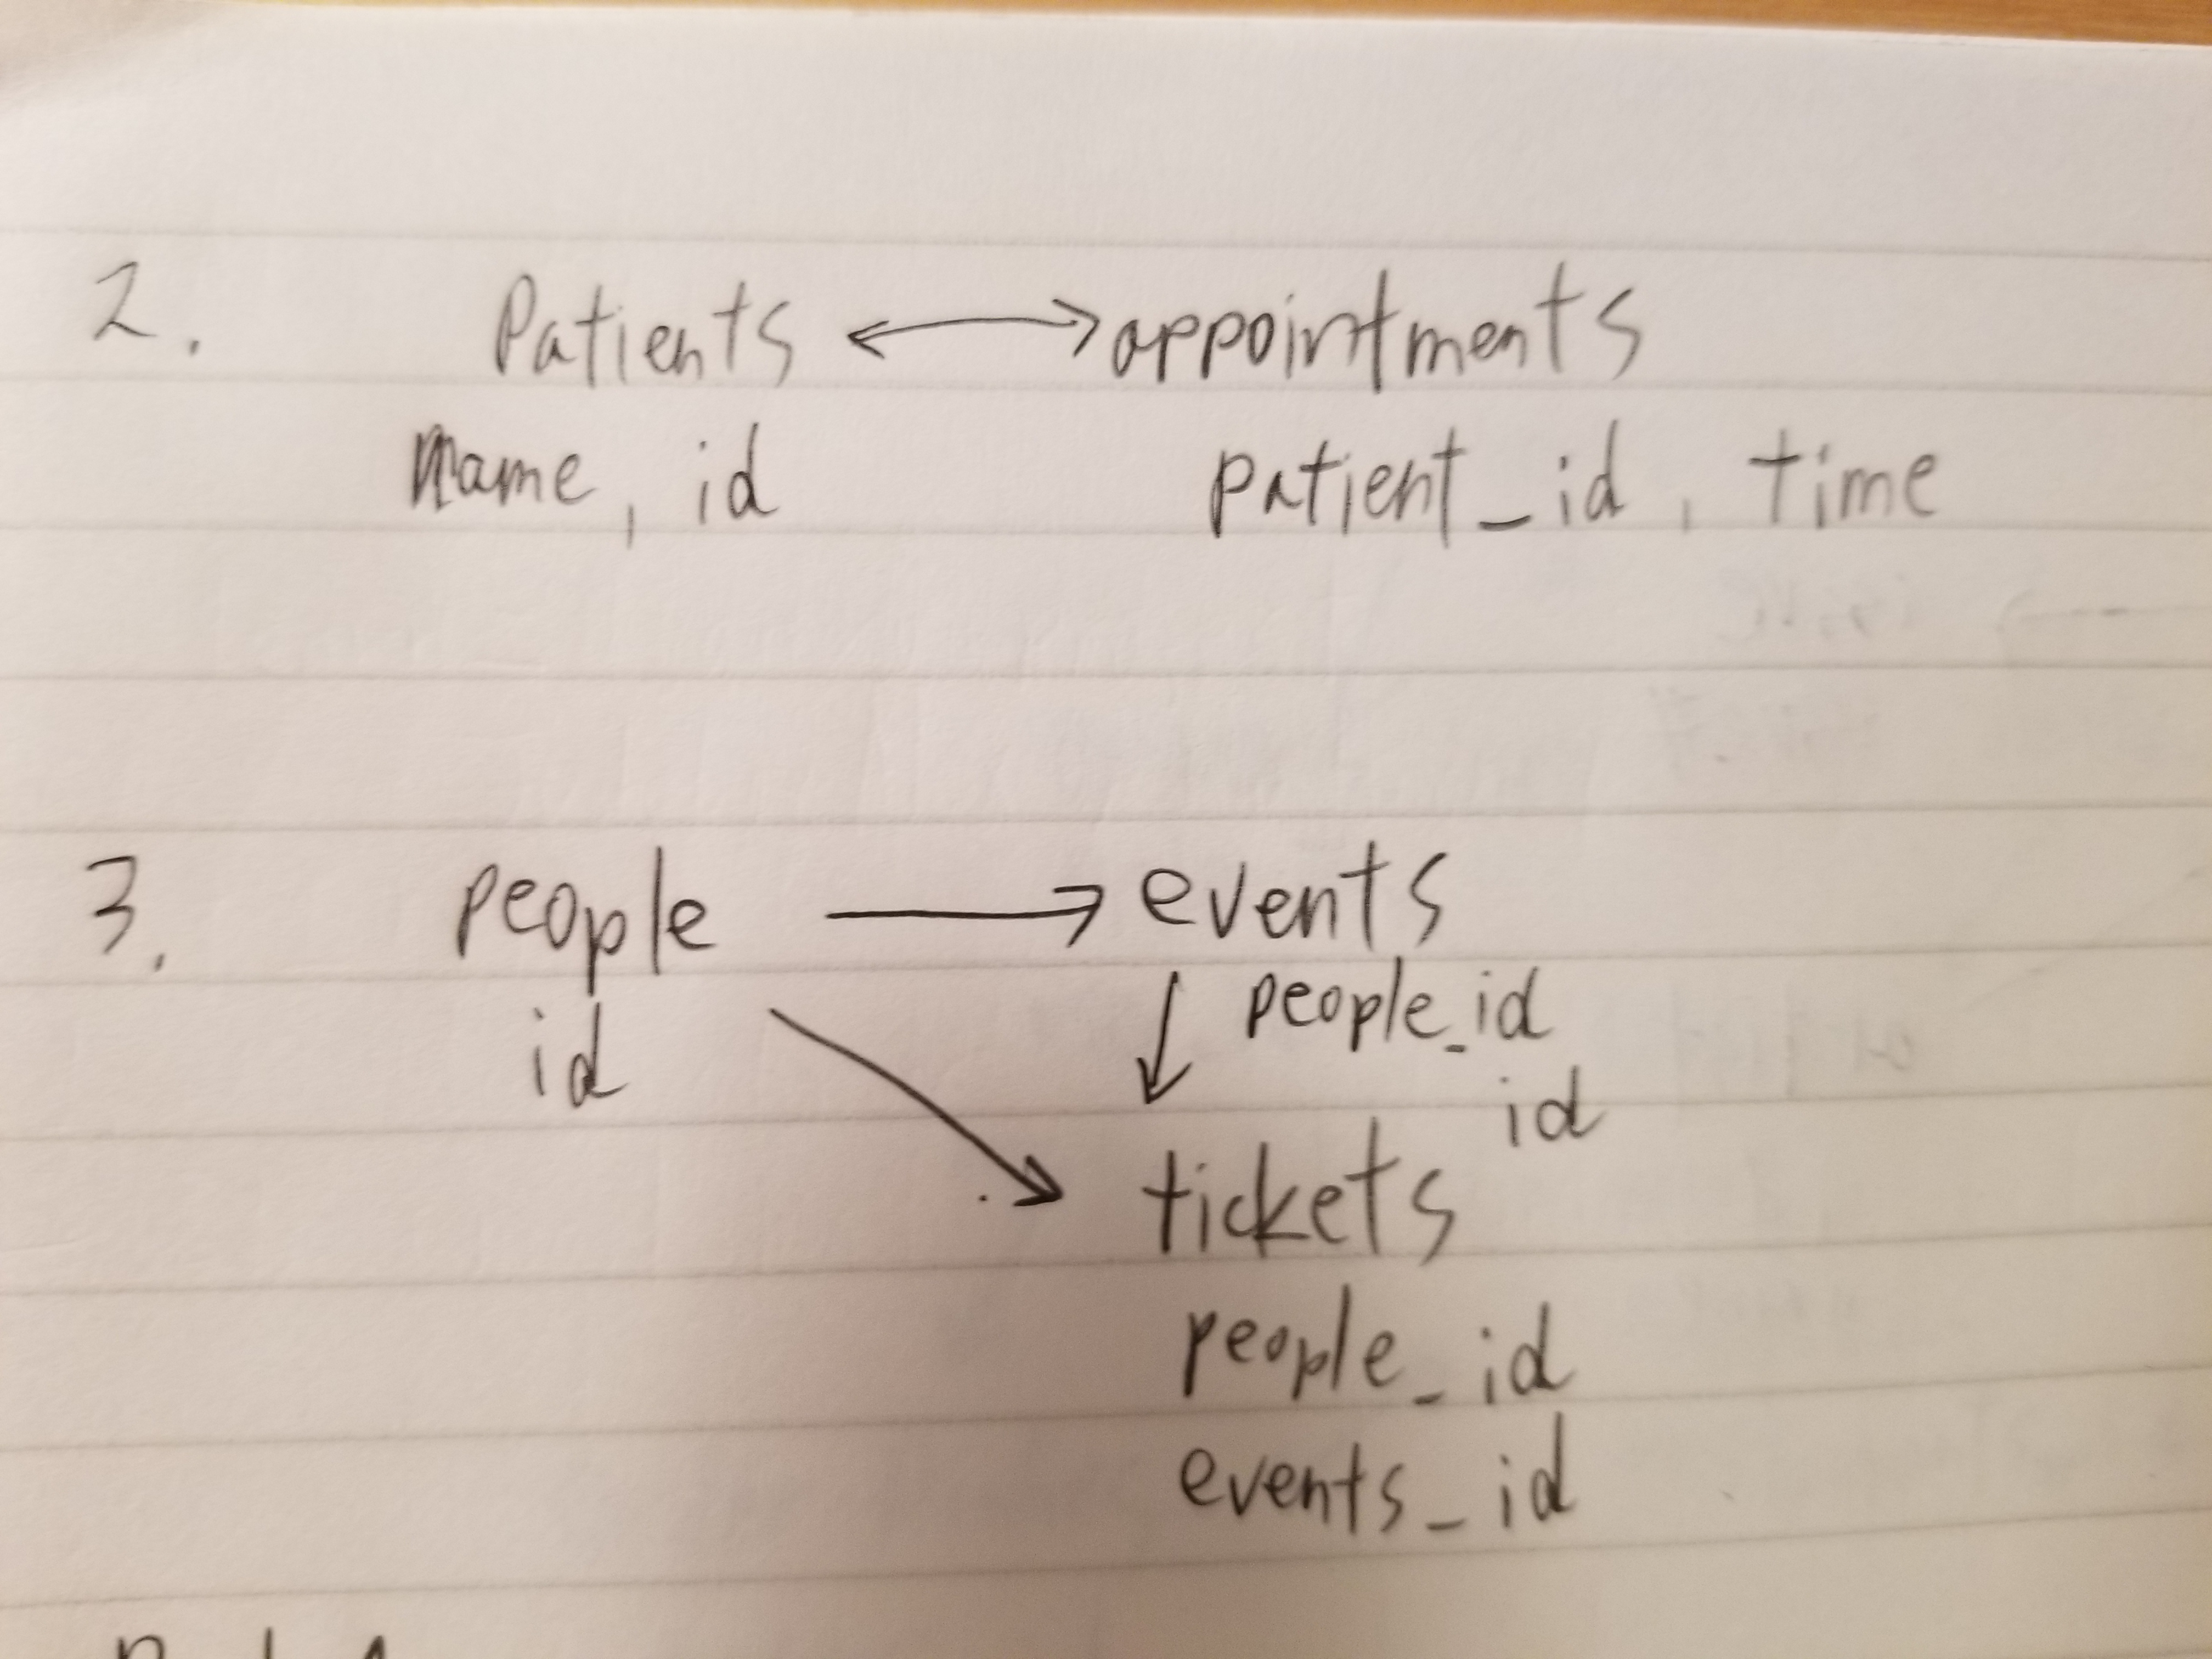 2. Patients ⟷ appointments
name, id patient_id, time
3. people ⟶ events
id ↓ people_id
id
tickets
people_id
events_id